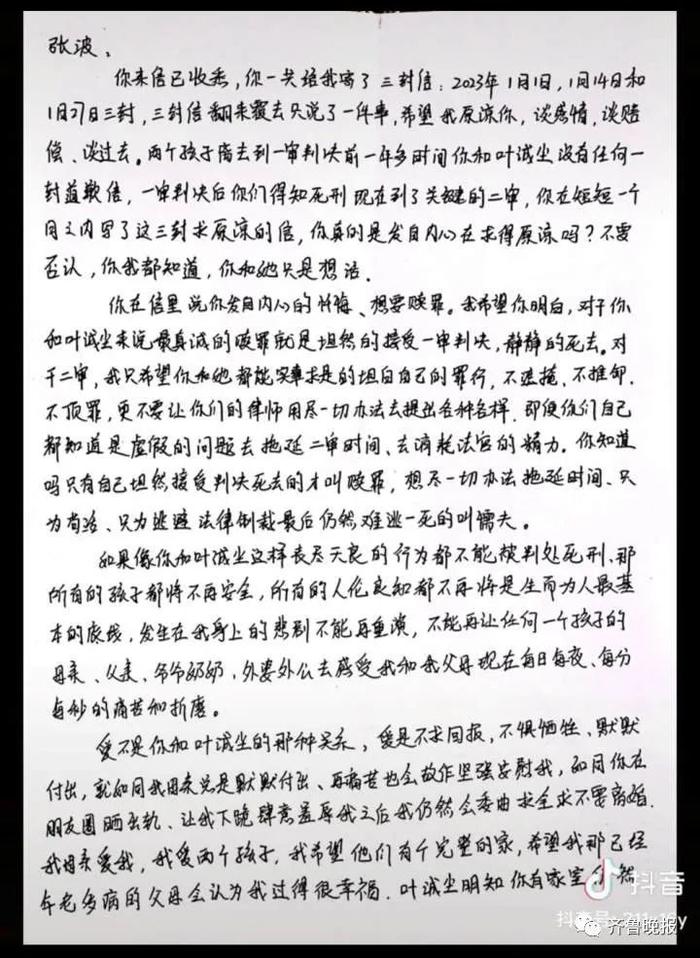 张波、
你来信已收悉，你一共给我寄了三封信：2023年1月1日，1月14日和
1月27日三封，三封信翻来覆去只说了一件事，希望我原谅你，谈感情，谈赔
偿、谈过去。两个孩子离去到一审判决前一年多时间你和叶诚尘没有任何一
封道歉信，一审判决后你们得知死刑现在到了关键的二审，你在短短一个
月之内写了这三封求原谅的信，你真的是发自内心在求得原谅吗？不要
否认，你我都知道，你和她只是想活．
你在信里说你发自内心的忏悔、想要赎罪。我希望你明白，对于你
和叶诚尘来说最真诚的赎罪就是坦然的接受一审判决，静静的死去。对
于二审，我只希望你和她都能实事求是的坦白自己的罪行，不遮掩．不推卸．
不顶罪，更不要让你们的律师用尽一切办法去提出各种各样．即便你们自己
都知道是虚假的问题去拖延二审时间、去消耗法官的精力。你知道
吗只有自己坦然接受判决死去的才叫赎罪，想尽一切办法拖延时间、只
为苟活、只为逃避法律制裁最后仍然难逃一死的叫懦夫。
如果像你和叶诚尘这样丧尽天良的行为都不能被判处死刑、那
所有的孩子都将不再安全，所有的人伦良知都不再将是生而为人最基
本的底线，发生在我身上的悲剧不能再重演，不能再让任何一个孩子的
母亲、父亲、爷爷奶奶，外婆外公去感受我和我父母现在每日每夜、每分
每秒的痛苦和折磨。
爱不是你和叶诚尘的那种关系，爱是不求回报，不惧牺牲、默默
付出，就如同我母亲总是默默付出、再痛苦也会故作坚强安慰我，如同你在
朋友圈晒出轨、让我下跪肆意羞辱我之后我仍然会委曲求全求不要离婚．
我母亲爱我，我爱两个孩子，我希望他们有个完整的家，希望我那已经
年老多病的父母会认为我过得很幸福．叶诚尘明知你有家室
抖音
抖音号：
齐鲁晚报